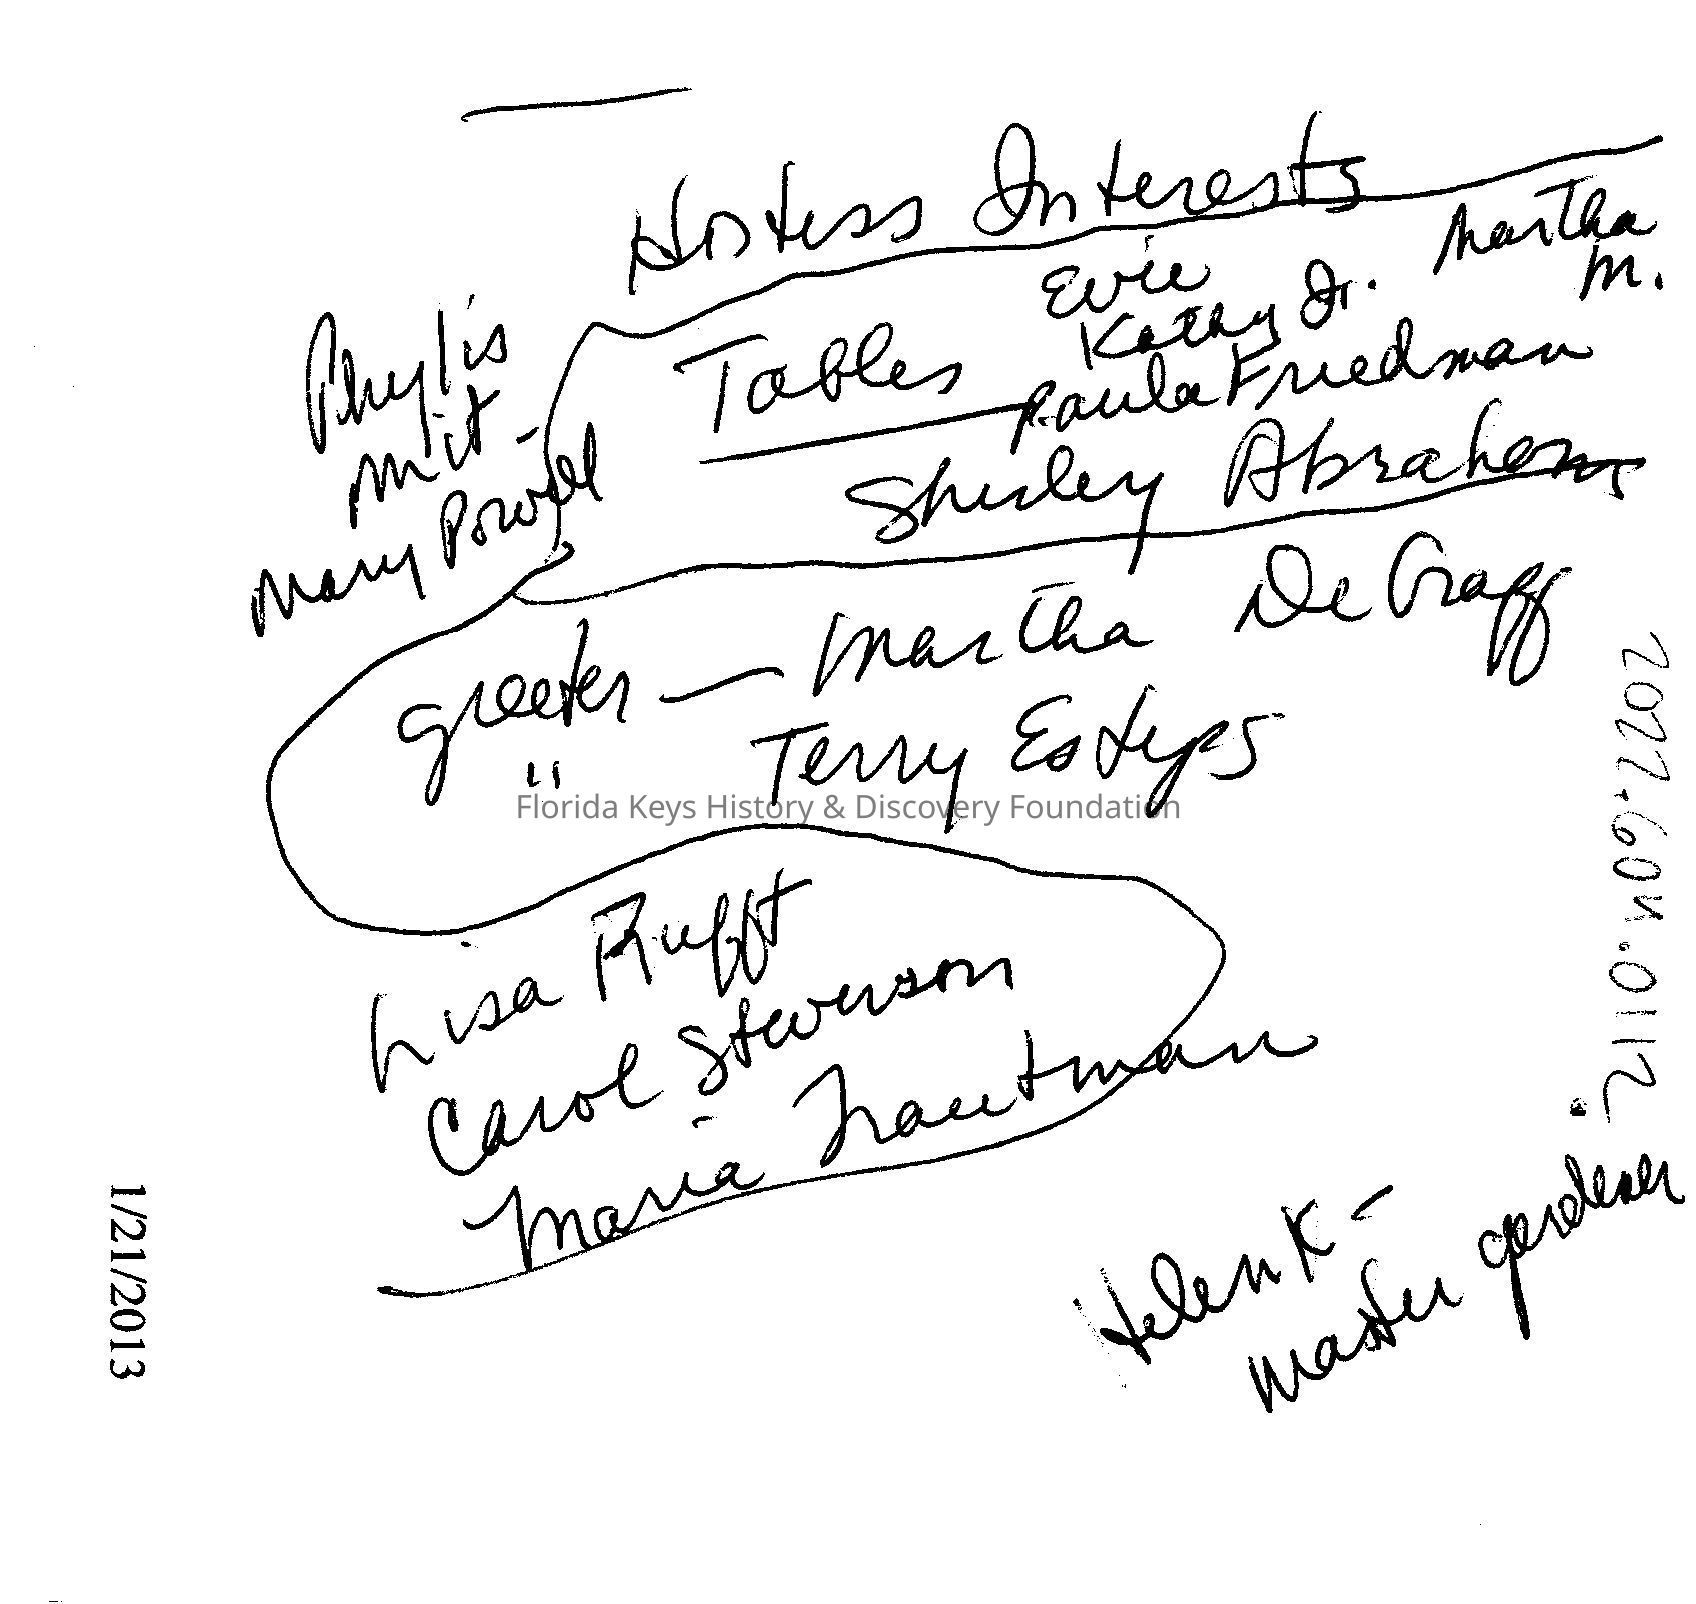 Hostess Interests
Evie
Martha
M.
Kathy Jr.
Tables
Paula Friedman
Shirley Abrahams
Phylis
Mit-
Mary Powell
greeter — Martha DeGraff
" Terry Estyps
Florida Keys History & Discovery Foundation
Lisa Rufft
Carol Stevenson
Maria Trautman
Helen K -
master gardener
1/21/2013